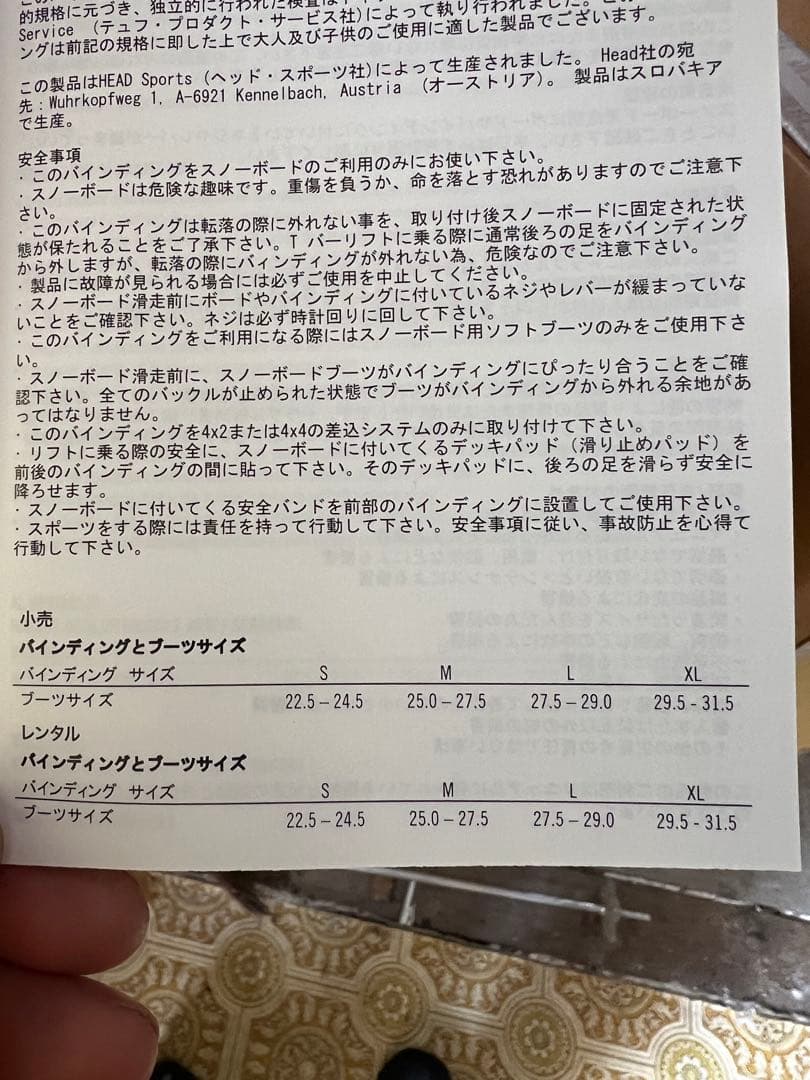 的規格に元づき、独立的に行われた検査は
Service （テュフ・プロダクト・サービス社)によって執り行われました。
ングは前記の規格に即した上で大人及び子供のご使用に適した製品でございます。
この製品はHEAD Sports (ヘッド・スポーツ社)によって生産されました。 Head社の宛
先：Wuhrkopfweg 1, A-6921 Kennelbach, Austria （オーストリア)。 製品はスロバキア
で生産。
安全事項
・このバインディングをスノーボードのご利用のみにお使い下さい。
・スノーボードは危険な趣味です。重傷を負うか、命を落とす恐れがありますのでご注意下
さい。
・このバインディングは転落の際に外れない事を、取り付け後スノーボードに固定された状
態が保たれることをご了承下さい。T バーリフトに乗る際に通常後ろの足をバインディング
から外しますが、転落の際にバィンディングが外れない為、危険なのでご注意下さい。
・製品に故障が見られる場合には必ずご使用を中止してください。
・スノーボード滑走前にボードやバインディングに付いているネジやレバーが緩まっていな
いことをご確認下さい。ネジは必ず時計回りに回して下さい。
・このバインディングをご利用になる際にはスノーボード用ソフトブーツのみをご使用下さ
い。
・スノーボード滑走前に、スノーボードブーツがバインディングにぴったり合うことをご確
認下さい。全てのバックルが止められた状態でブーツがバインディングから外れる余地があ
ってはなりません。
・このバインディングを4x2または4x4の差込システムのみに取り付けて下さい。
・リフトに乗る際の安全に、スノーボードに付いてくるデッキパッド（滑り止めパッド）を
前後のバインディングの間に貼って下さい。そのデッキパッドに、後ろの足を滑らず安全に
降ろせます。
・スノーボードに付いてくる安全バンドを前部のバインディングに設置してご使用下さい。
・スポーツをする際には責任を持って行動して下さい。安全事項に従い、事故防止を心得て
行動して下さい。
小売
バインディングとブーツサイズ
バインディング サイズ S M L XL
ブーツサイズ 22.5 – 24.5 25.0 – 27.5 27.5 – 29.0 29.5 - 31.5
レンタル
バインディングとブーツサイズ
バインディング サイズ S M L XL
ブーツサイズ 22.5 – 24.5 25.0 – 27.5 27.5 – 29.0 29.5 - 31.5